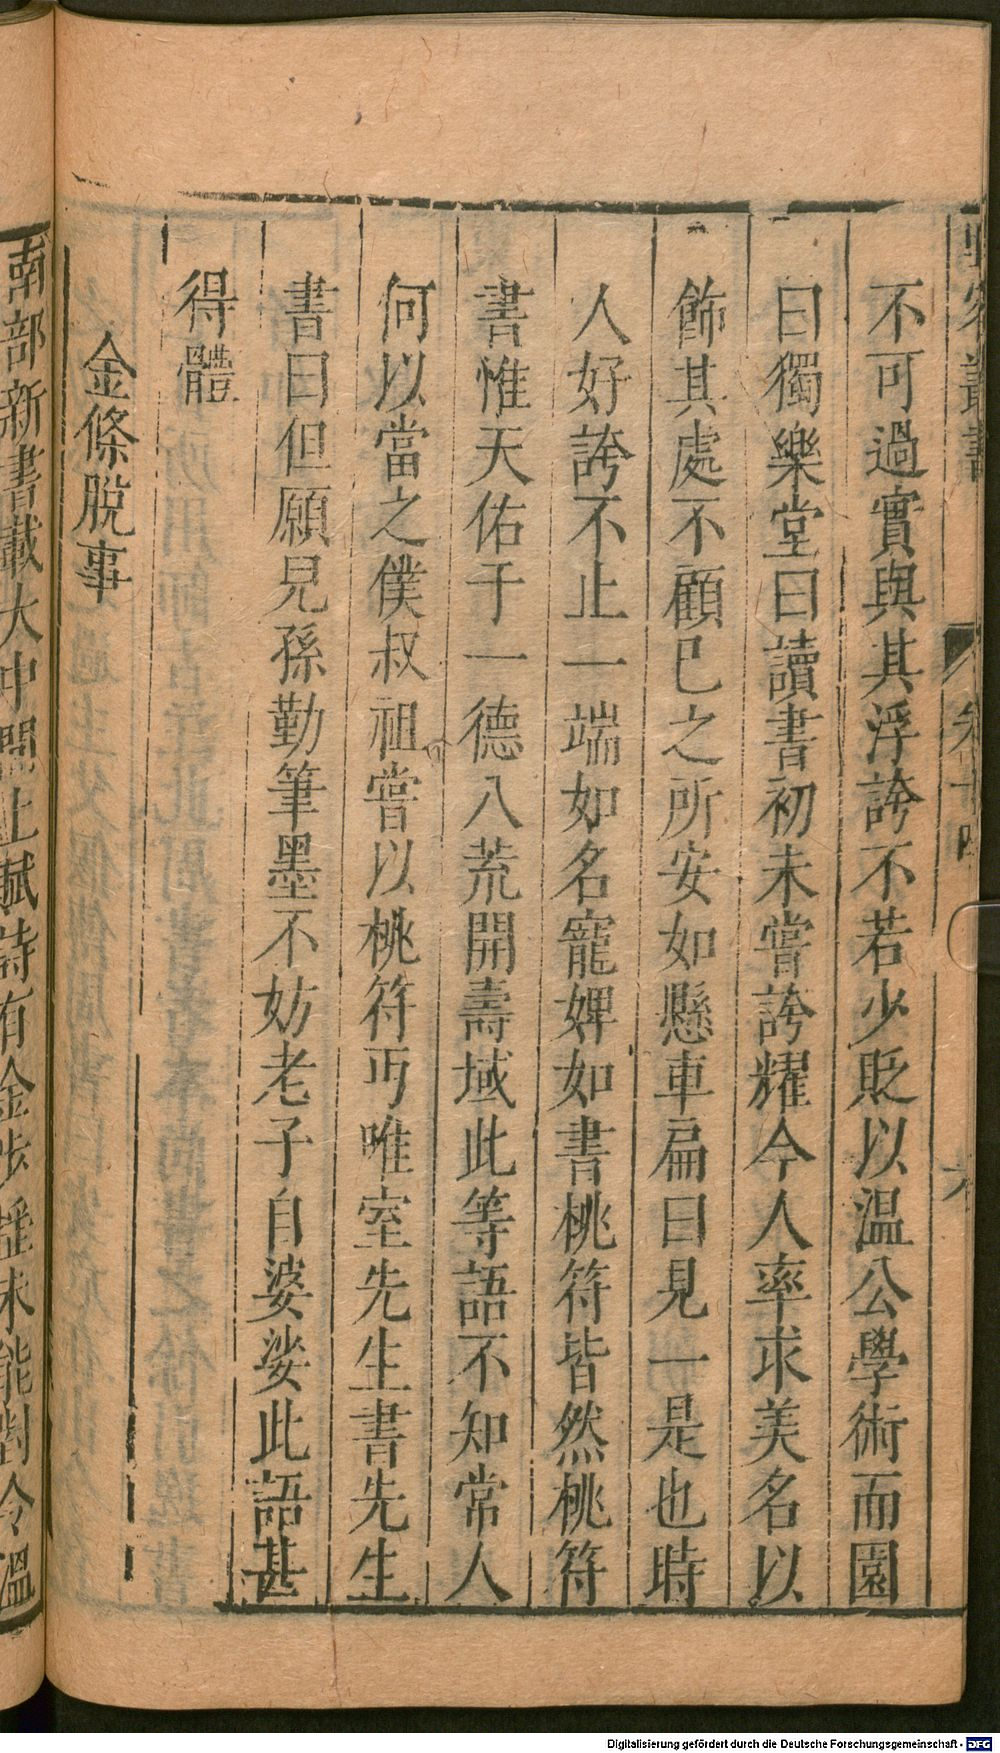 野客叢書 卷十四 六
不可過實與其浮誇不若少貶以溫公學術而園
曰獨樂堂曰讀書初未嘗誇耀今人率求美名以
飾其處不顧已之所安如懸車扁曰見一是也時
人好誇不止一端如名寵婢如書桃符皆然桃符
書惟天佑于一德八荒開壽域此等語不知常人
何以當之僕叔祖嘗以桃符丐唯室先生書先生
書曰但願兒孫勤筆墨不妨老子自婆娑此語甚
得體
金條脫事
南部新書載大中間上賦詩有金步搖未能對令溫
Digitalisierung gefördert durch die Deutsche Forschungsgemeinschaft - DFG